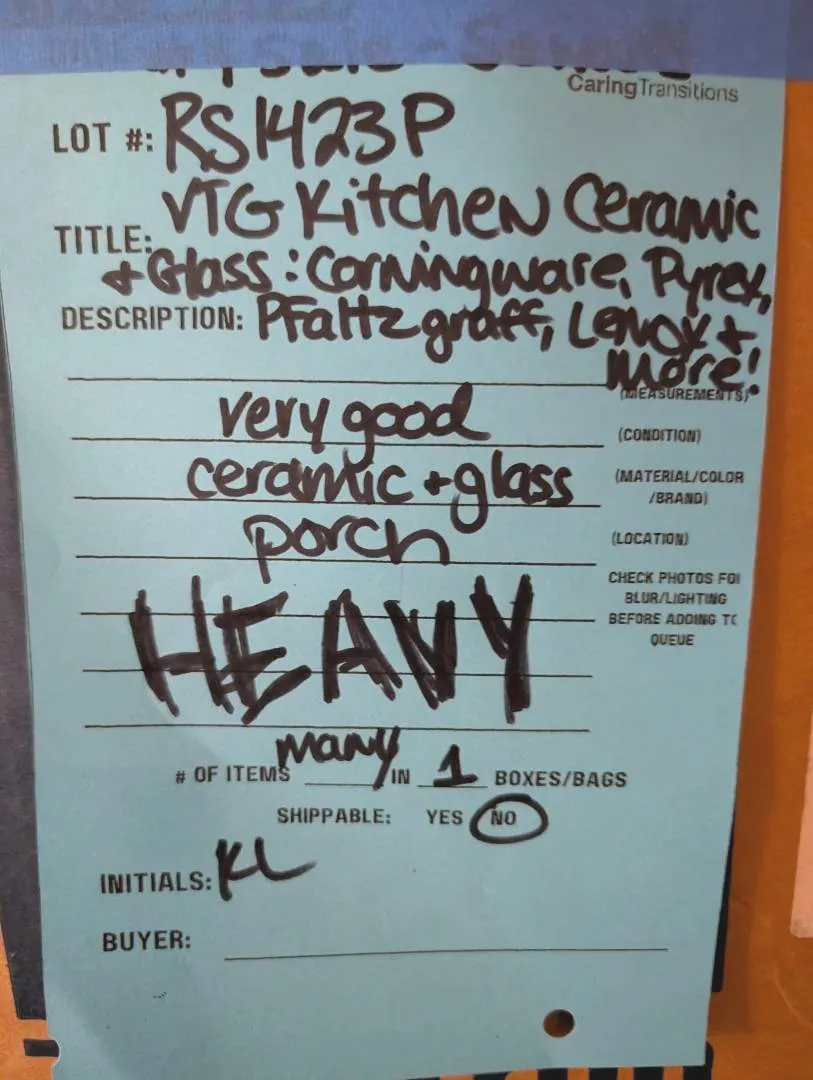 CaringTransitions
LOT #: RS1423P
TITLE: VTG Kitchen Ceramic
+ Glass: Corningware, Pyrex,
DESCRIPTION: Pfaltzgraff, Lenox +
More!
(MEASUREMENTS)
very good (CONDITION)
ceramic + glass (MATERIAL/COLOR
/BRAND)
porch (LOCATION)
CHECK PHOTOS FOR
BLUR/LIGHTING
BEFORE ADDING TO
QUEUE
HEAVY
# OF ITEMS many IN 1 BOXES/BAGS
SHIPPABLE: YES NO
INITIALS: KL
BUYER: